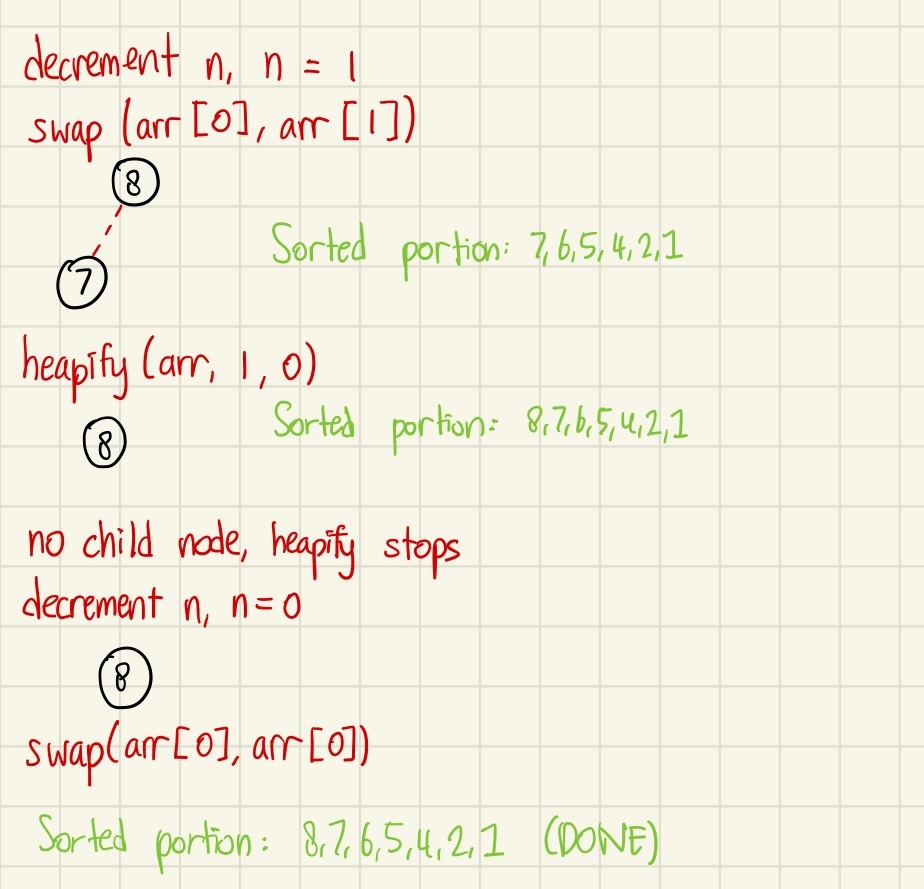 decrement n, n = 1
swap (arr [0], arr [1])
8
Sorted portion: 7,6,5,4,2,1
7
heapify (arr, 1, 0)
Sorted portion: 8,7,6,5,4,2,1
8
no child node, heapify stops
decrement n, n=0
8
swap(arr[0], arr[0])
Sorted portion: 8,7,6,5,4,2,1 (DONE)